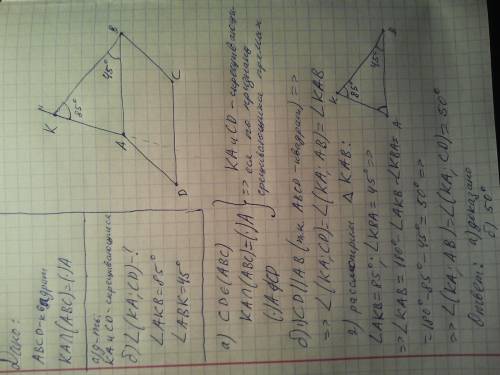 Дано:
ABCD-квадрат
KA∩(ABC)=(·)A
а) д-ть:
KA и CD-скрещивающиеся
б) ∠(KA;CD)-?
∠AKB=85°
∠ABK=45°
K
85°
45°
B
A
C
D
а) CD∈(ABC)
KA∩(ABC)=(·)A
(·)A∉CD
} => KA и CD-скрещивающи-
еся по признаку
скрещивающихся прямых
б) 1) CD||AB (т.к. ABCD-квадрат) =>
=> ∠(KA;CD)=∠(KA;AB)=∠KAB
2) рассмотрим △KAB:
∠AKB=85°; ∠KBA=45° =>
=> ∠KAB=180°-∠AKB-∠KBA=
=180°-85°-45°=50° =>
=> ∠(KA;AB)=∠(KA;CD)=50°
K
85°
45°
B
A
Ответ: а) доказано
б) 50°